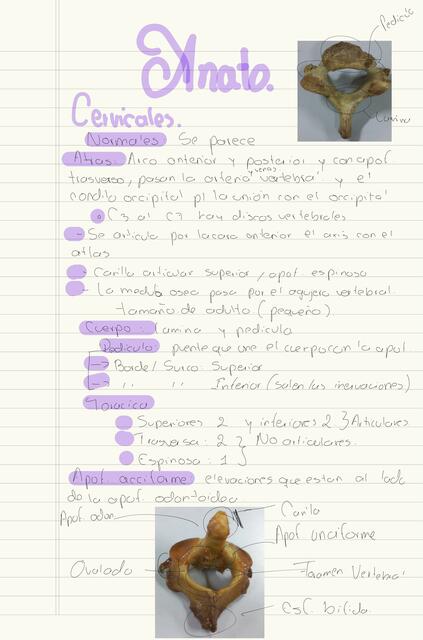 Anato.
Pediculo
Lamina
Cervicales.
Normales Se parece
Atlas: Arco anterior y posterior y con apof.
trasverso, pasan la arteria y venas vertebral y el
condilo occipital pl la unión con el occipital
C3 al C7 hay discos vertebrales
- Se articula por la cara anterior el axis con el
atlas
- Carilla articular superior / apof. espinosa
- La medula osea pasa por el agujero vertebral.
Tamaño de adulto (pequeño).
Cuerpo: lamina y pediculo
Pediculo: puente que une el cuerpo con la apof
→ Borde / Surco: Superior
→ '' '' Inferior (salen las inervaciones)
Toracica
Superiores 2 y inferiores 2 } Articulares
Trasversa: 2 } No articulares.
Espinosa: 1 }
Apof. unciforme elevaciones que estan al lado
de la apof. odontoidea
Apof. odon
Carilla
Apof unciforme
Ovalado
Foramen Vertebral
esf. bifida.